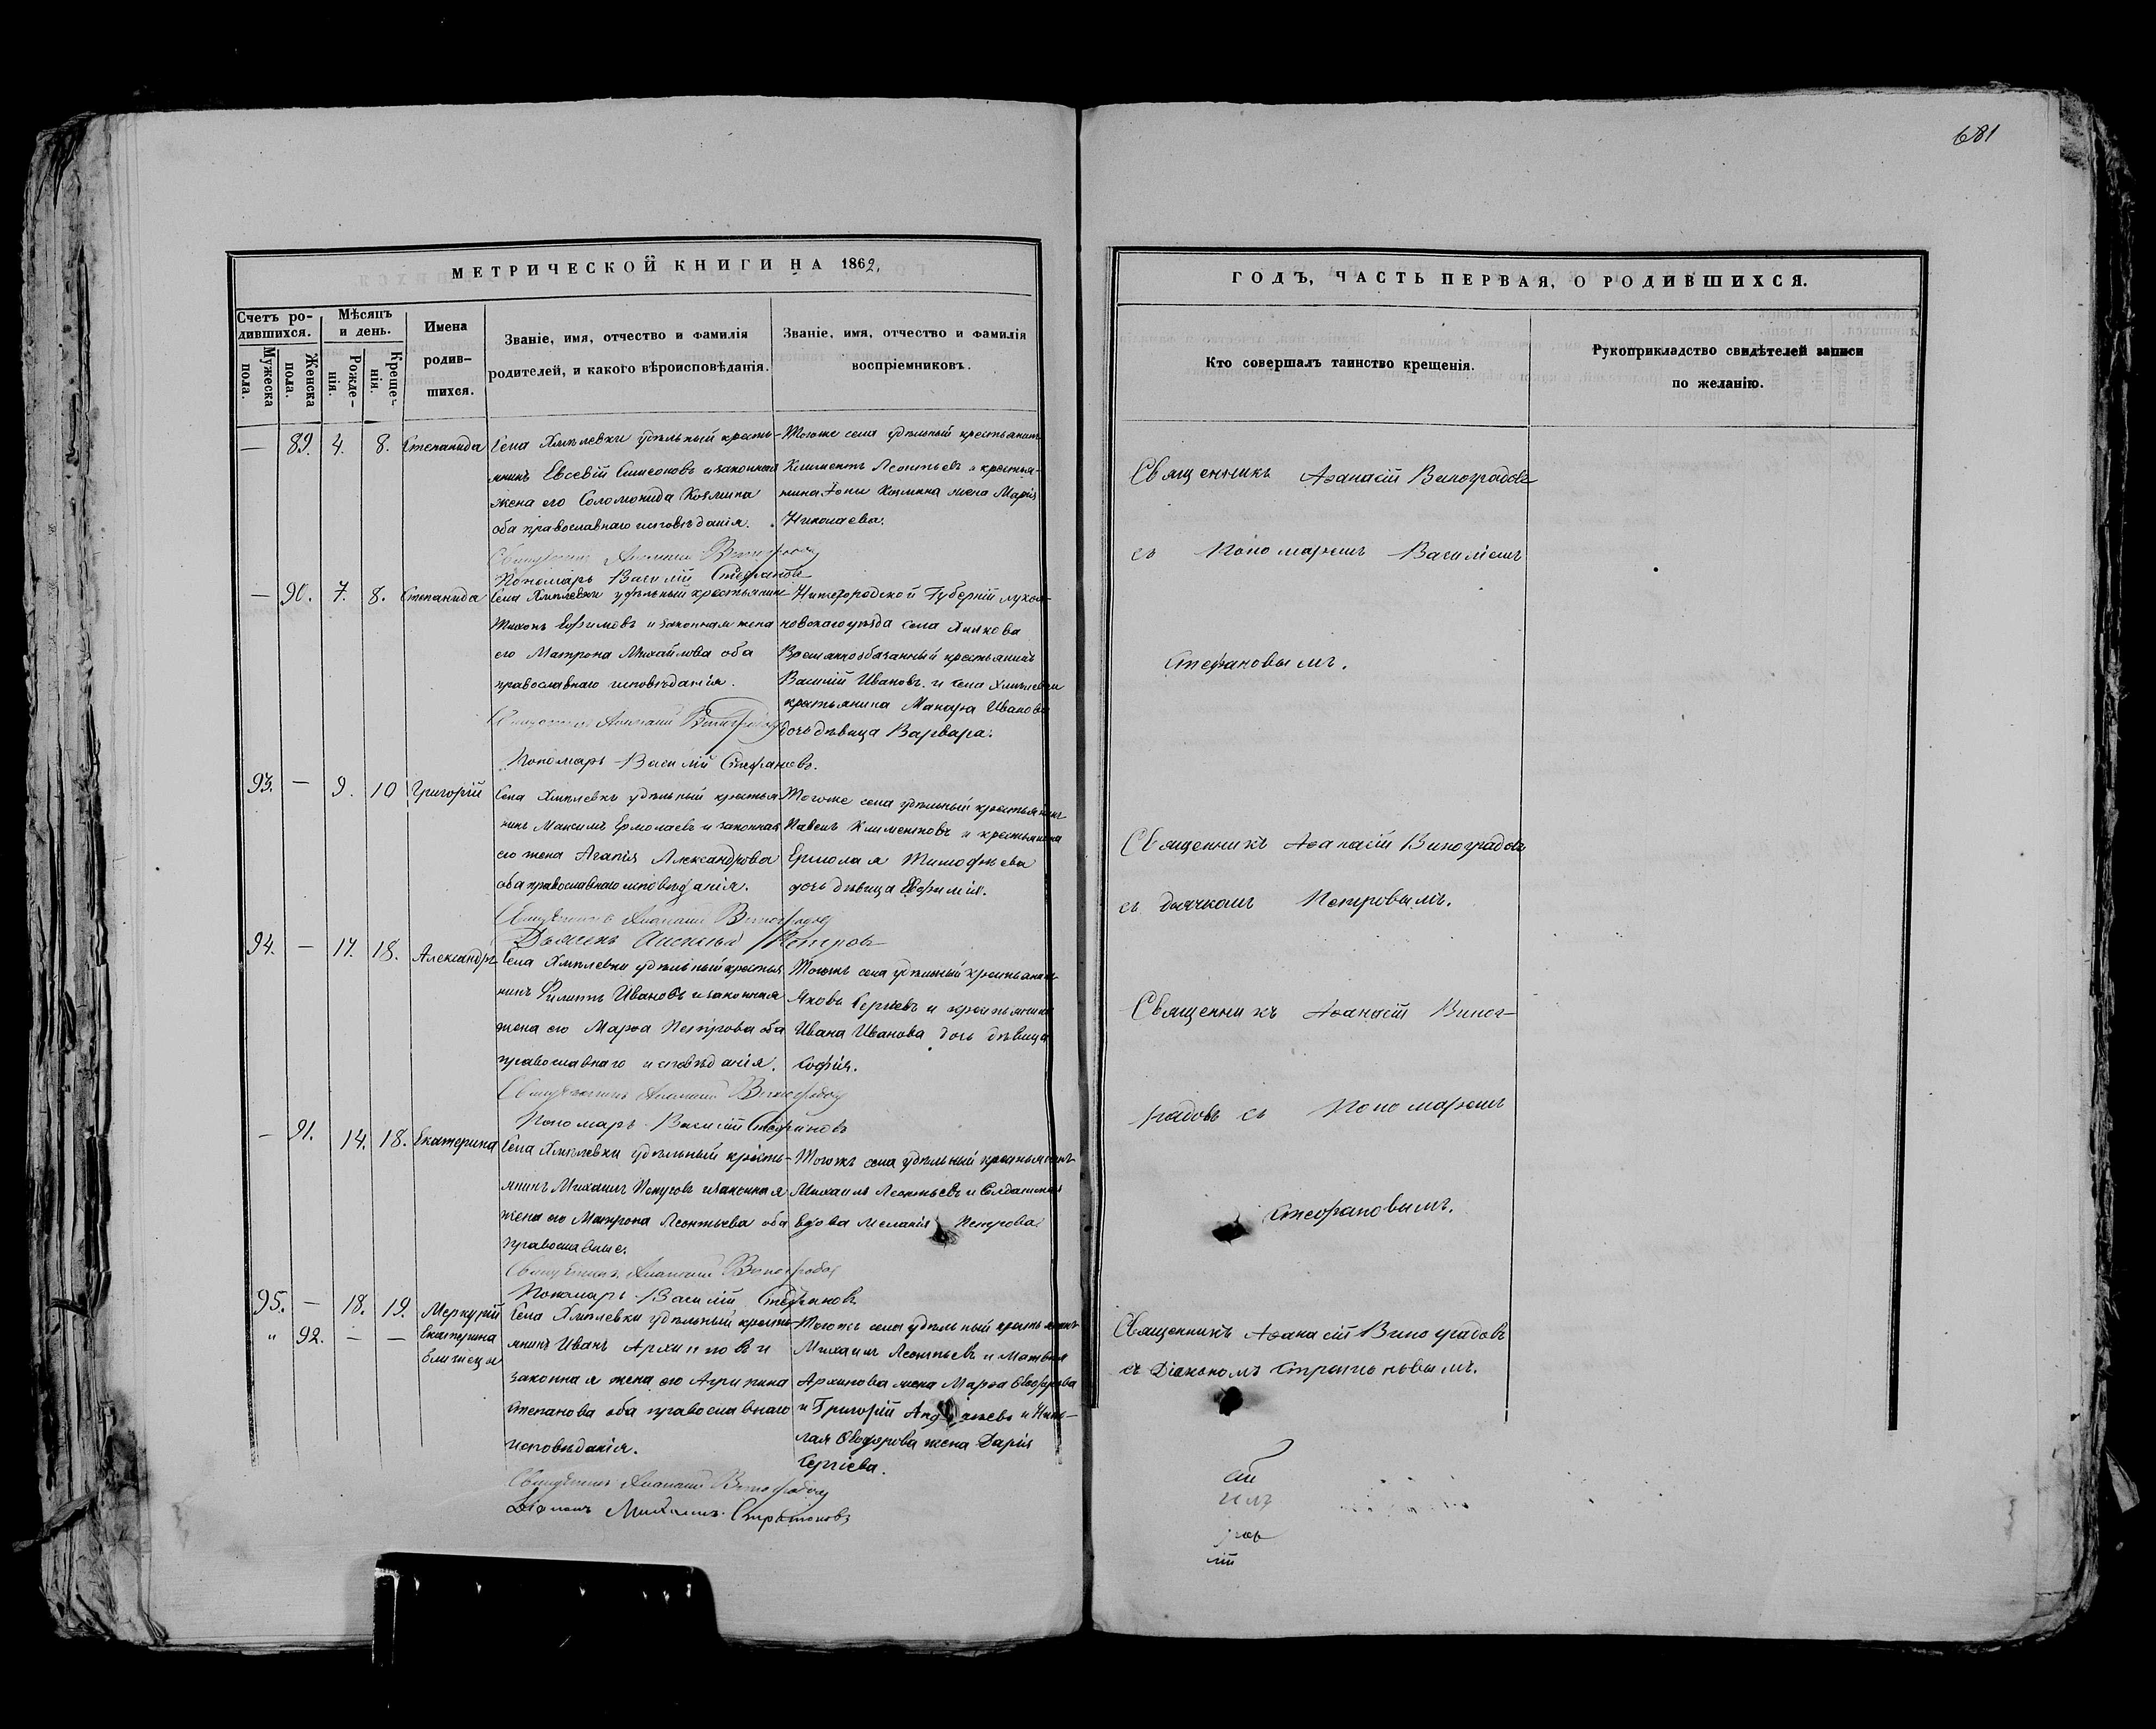 681
МЕТРИЧЕСКОЙ КНИГИ НА 1862,
Счетъ ро-
дившихся.
Мужеска
пола.
Женска
пола.
Мѣсяцъ
и день.
Рожде-
нія.
Креще-
нія.
Имена
родив-
шихся.
Званіе, имя, отчество и фамилія
родителей, и какого вѣроисповѣданія.
Званіе, имя, отчество и фамилія
воспріемниковъ.
— 89. 4. 8. Степанида
Села Хмѣлевки удѣльный кресть-
янинъ Евсевій Симеоновъ и законная
жена его Соломонида Козмина
оба православнаго исповѣданія.
Тогоже села удѣльный крестьянинъ
Климентъ Леонтьевъ и крестья-
нина Іоны Козмина жена Марія
Николаева.
Священникъ Аѳанасій Виноградовъ
Пономарь Василій Стефановъ
— 90. 7. 8. Степанида
Села Хмѣлевки удѣльный крестьянинъ
Тихонъ Ефимовъ и законная жена
его Матрона Михайлова оба
православнаго исповѣданія.
Нижегородской Губерніи лукоя-
новскаго уѣзда села
Временнообязанный крестьянинъ
Василій Ивановъ. и села Хмѣлевки
крестьянина Макара Иванова
дочь дѣвица Варвара.
Священникъ Аѳанасій Виноградовъ
Пономарь Василій Стефановъ.
93. — 9. 10 Григорій
Села Хмѣлевки удѣльный крестья
нинъ Максимъ Ермолаевъ и законная
его жена Агапія Александрова
оба православнаго исповѣданія.
Тогоже села удѣльный крестьянинъ
Павелъ Климентовъ и крестьянина
Ермолая Тимофѣева
дочь дѣвица Евфимія.
Священникъ Аѳанасій Виноградовъ
Дьячекъ Петровъ
94. — 17. 18. Александръ
Села Хмѣлевки удѣльный крестья
нинъ Филиппъ Ивановъ и законная
жена его Марѳа Петрова оба
православнаго исповѣданія.
Тогожъ села удѣльный крестьянинъ
Яковъ Сергѣевъ и крестьянина
Ивана Иванова дочь дѣвица
Софія.
Священникъ Аѳанасій Виноградовъ
Пономарь Василій Стефановъ
— 91. 14. 18. Екатерина
Села Хмѣлевки удѣльный кресть-
янинъ Михаилъ и законная
жена его Матрона Леонтьева оба
православные.
Тогожъ села удѣльный крестьянинъ
Михаилъ Леонтьевъ и Солдатская
вдова Меланія Петрова
Священникъ Аѳанасій Виноградовъ
Пономарь Василій Стефановъ
95. — 18. 19. Меркурій
" 92. — — Екатерина
близнецы
Села Хмѣлевки удѣльный кресть
янинъ Иванъ Архиповъ и
законная жена его Агрипина
Степанова оба православнаго
исповѣданія.
Тогожъ села удѣльный крестьянинъ
Михаилъ Леонтьевъ и Матвѣя
Архипова жена Марѳа Ѳеодорова
и Григорій Андреяновъ и Нико-
лая Ѳеодорова жена Дарія
Сергіева.
Священникъ Аѳанасій Виноградовъ
Діаконъ Михаилъ
ГОДЪ, ЧАСТЬ ПЕРВАЯ, О РОДИВШИХСЯ.
Кто совершалъ таинство крещенія.
Рукоприкладство свидѣтелей записи
по желанію.
Священникъ Аѳанасій Виноградовъ
съ Пономаремъ Василіемъ
Стефановымъ.
Священникъ Аѳанасій Виноградовъ
съ дьячкомъ Петровымъ.
Священникъ Аѳанасій Виног-
радовъ съ Пономаремъ
Стефановымъ.
Священникъ Аѳанасій Виноградовъ
съ Діакономъ